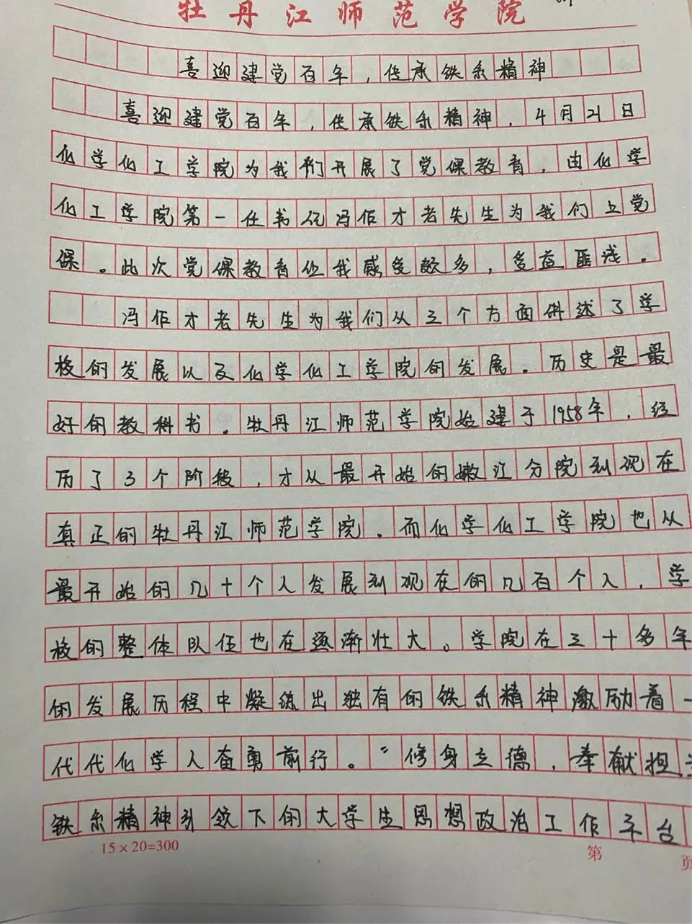 牡丹江师范学院
喜迎建党百年,传承铁系精神
喜迎建党百年,传承铁系精神,4月21日
化学化工学院为我们开展了党课教育,由化学
化工学院第一任书记冯作才老先生为我们上党
课。此次党课教育使我感受颇多,受益匪浅。
冯作才老先生为我们从三个方面讲述了学
校的发展以及化学化工学院的发展。历史是最
好的教科书。牡丹江师范学院始建于1958年,经
历了3个阶段,才从最开始的嫩江分院到现在
真正的牡丹江师范学院。而化学化工学院也从
最开始的几十个人发展到现在的几百个人,学
校的整体队伍也在逐渐壮大。学院在三十多年
的发展历程中凝练出独有的铁系精神激励着一
代代化学人奋勇前行。“修身立德,奉献担
铁系精神引领下的大学生思想政治工作平台
15×20=300
第
页